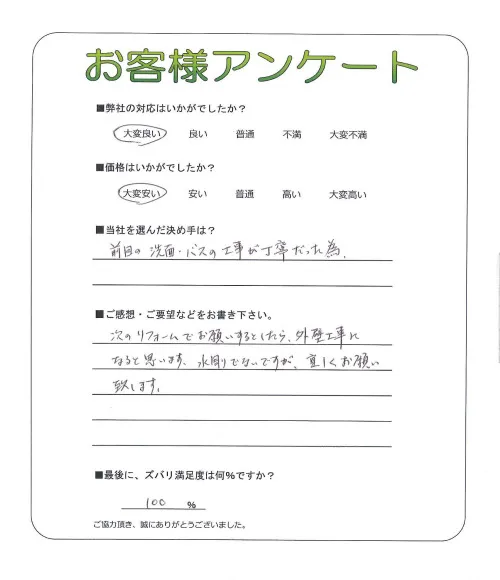 お客様アンケート
■弊社の対応はいかがでしたか?
大変良い 良い 普通 不満 大変不満
■価格はいかがでしたか?
大変安い 安い 普通 高い 大変高い
■当社を選んだ決め手は?
前回の洗面・バスの工事が丁寧だった為.
■ご感想・ご要望などをお書き下さい。
次のリフォームでお願いするとしたら、外壁工事に
なると思います. 水廻りでないですが、宜しくお願い
致します.
■最後に、ズバリ満足度は何%ですか?
100 %
ご協力頂き、誠にありがとうございました。